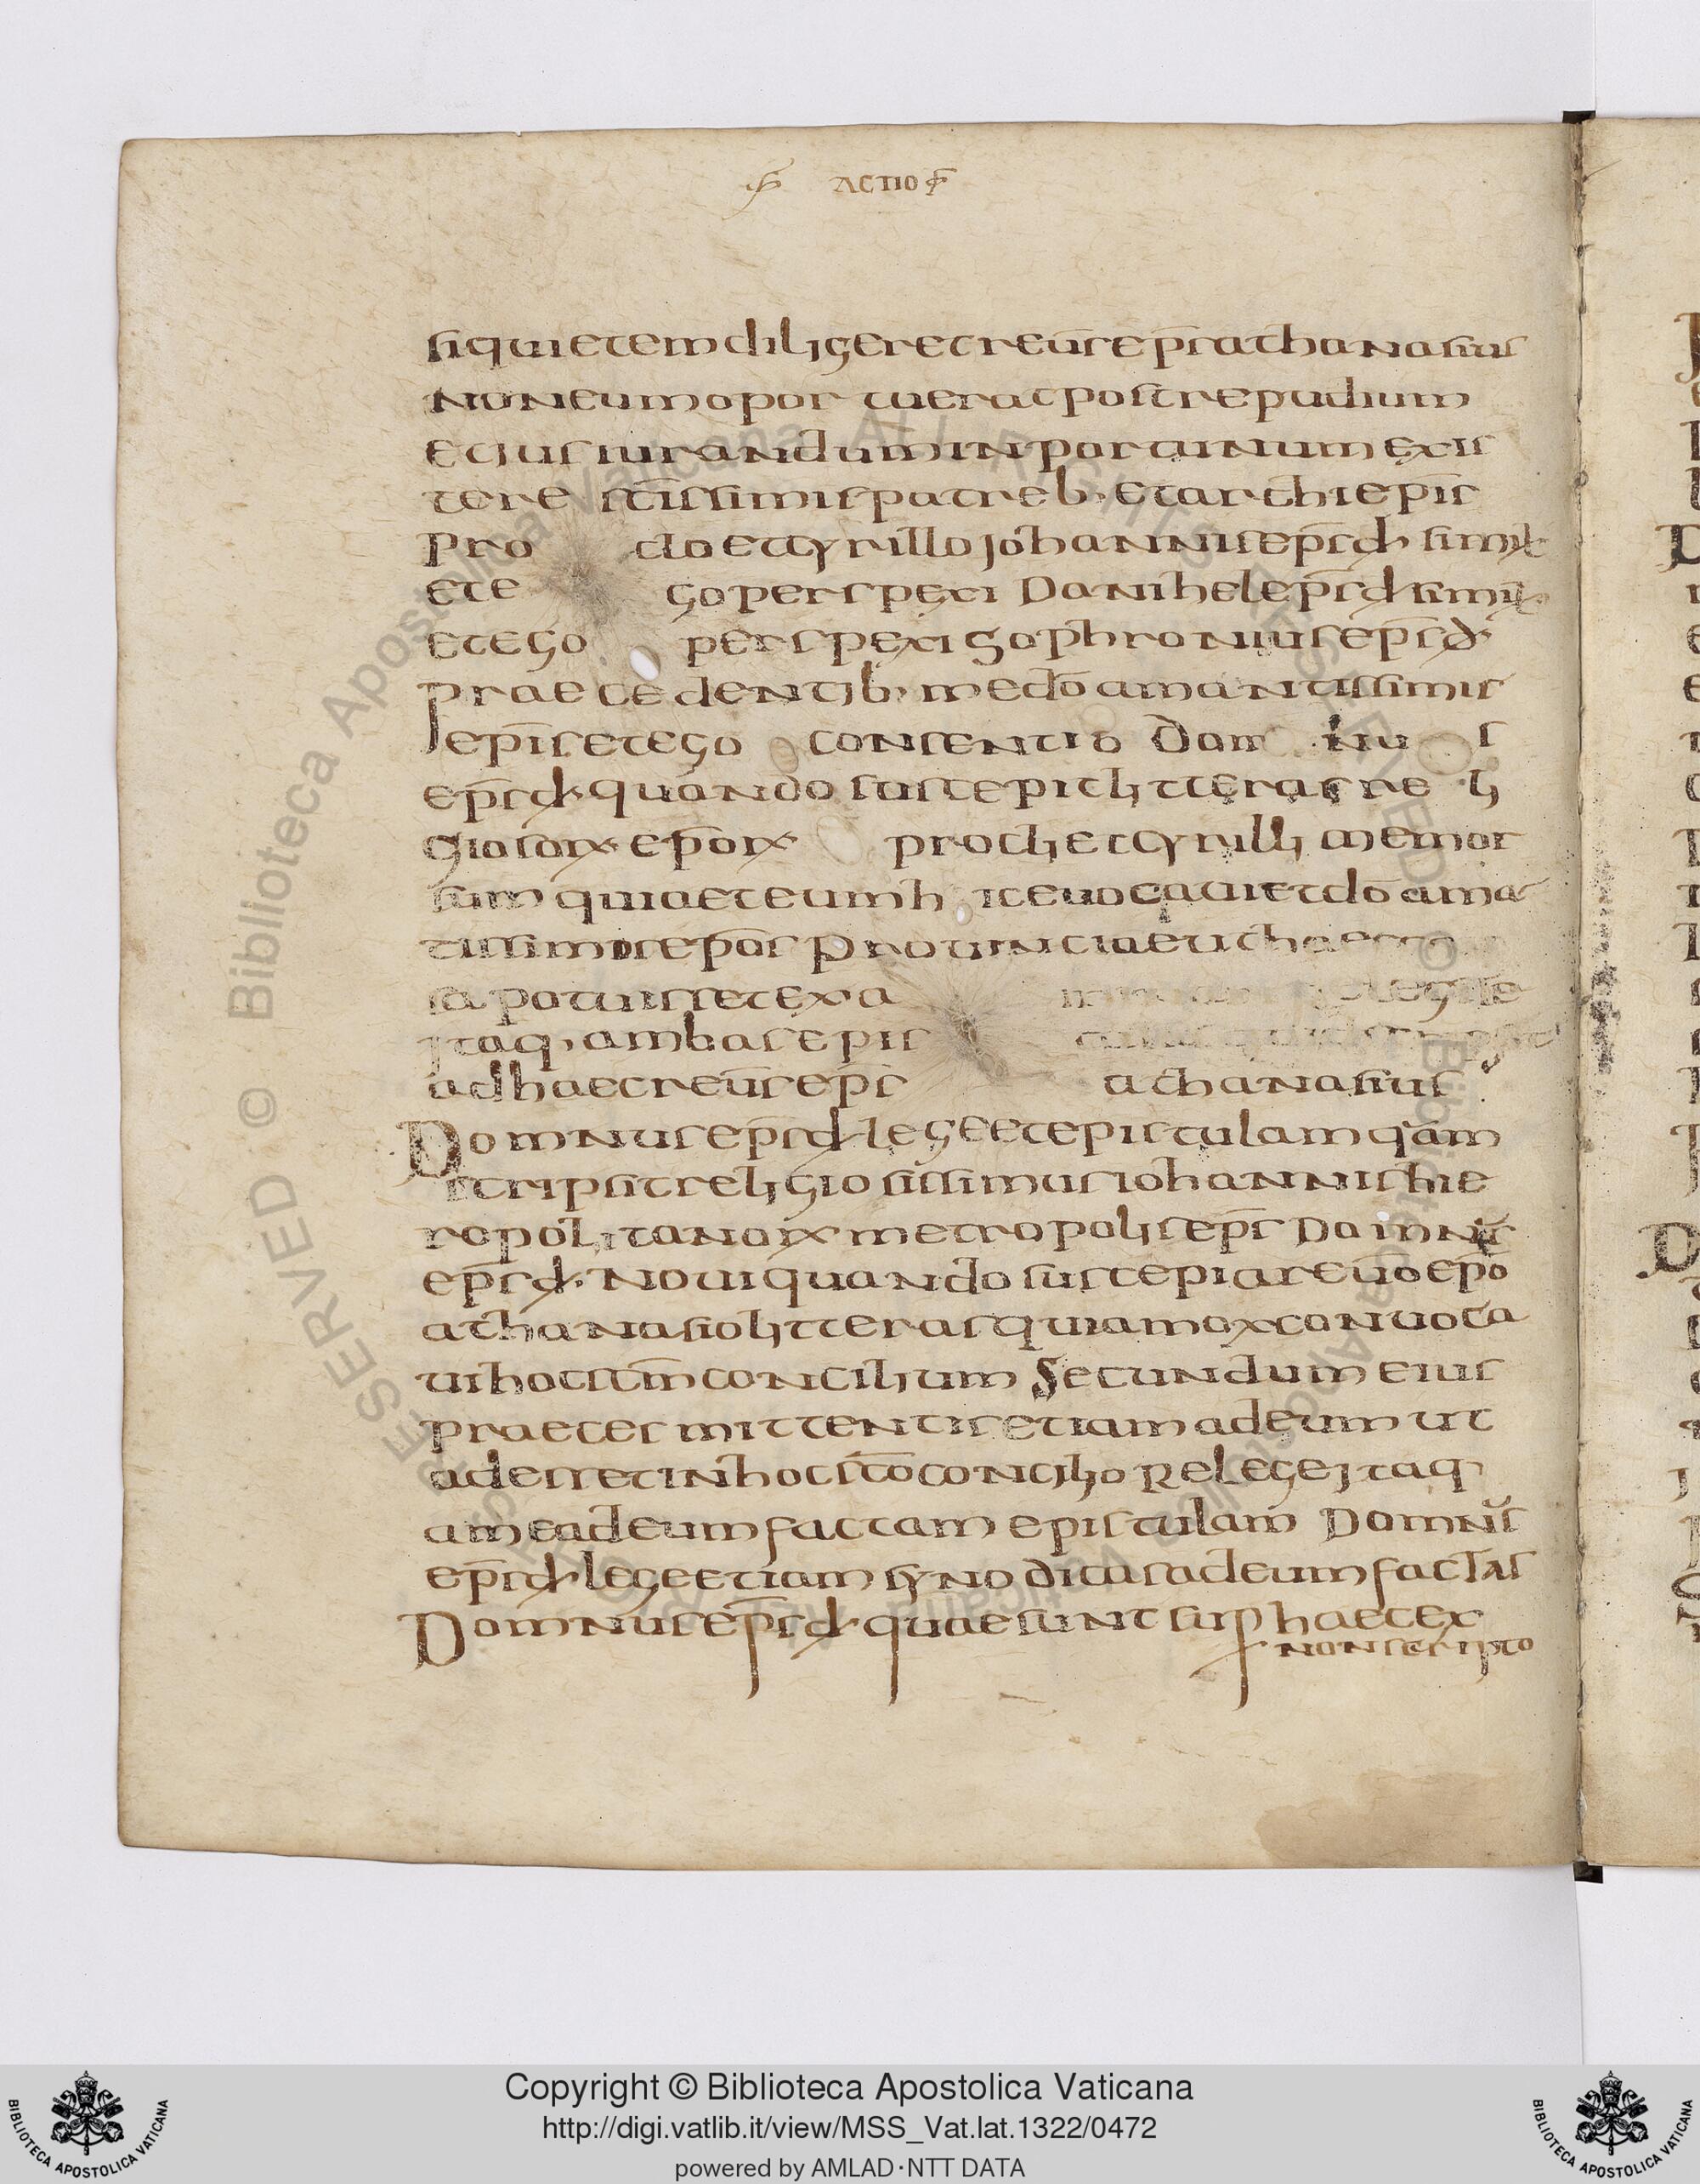 ACTIO
siquietemdiligeretreuērsepīsathanasius
noneumopor tueratpostrepudium
etiusiuranduminportunumexis
tere sc̄issimispatreb· etarchiepīs
Pro cloetcyrillo johannisepīsd· simil·
ete goperspexi Danihelepīsd·simil·
etego perspexi Sophroniusepīsd·
praecedentib· medōamantissimis
epīsetego consentio Dom nu s
epīsd·quando suscepit litteras re li
giosor· epōr· procli et cyrilli memor
sum quiaeteumh icevocavit dōama
tissimosepōs provinciae
sapotuissetexa
jtaq· ambasepīs
adhaecreuēsepīs athanasius
Domnusepīsd·legeetepistulamqam
scripsitreligiosissimusiohannishie
ropolitanor·metropolisepīs Domnus
epīsd· Noviquandosuscepiareūoepō
athanasiolitterasquiamoxconvoca
vihocsc̄mconcilium Secundumeius
praecesmittentisetiamadeumut
adessetinhocsc̄oconcilio Relegejtaq·
ameadeumfactamepistulam Domnus
epīsd·legeetiamsynodicasadeumfactas
Domnusepīsd·quaesuntsup haecex
nonscripto
RESERVED © Biblioteca Apostolica Vaticana
Copyright © Biblioteca Apostolica Vaticana
http://digi.vatlib.it/view/MSS_Vat.lat.1322/0472
powered by AMLAD·NTT DATA
BIBLIOTECA APOSTOLICA VATICANA
BIBLIOTECA APOSTOLICA VATICANA